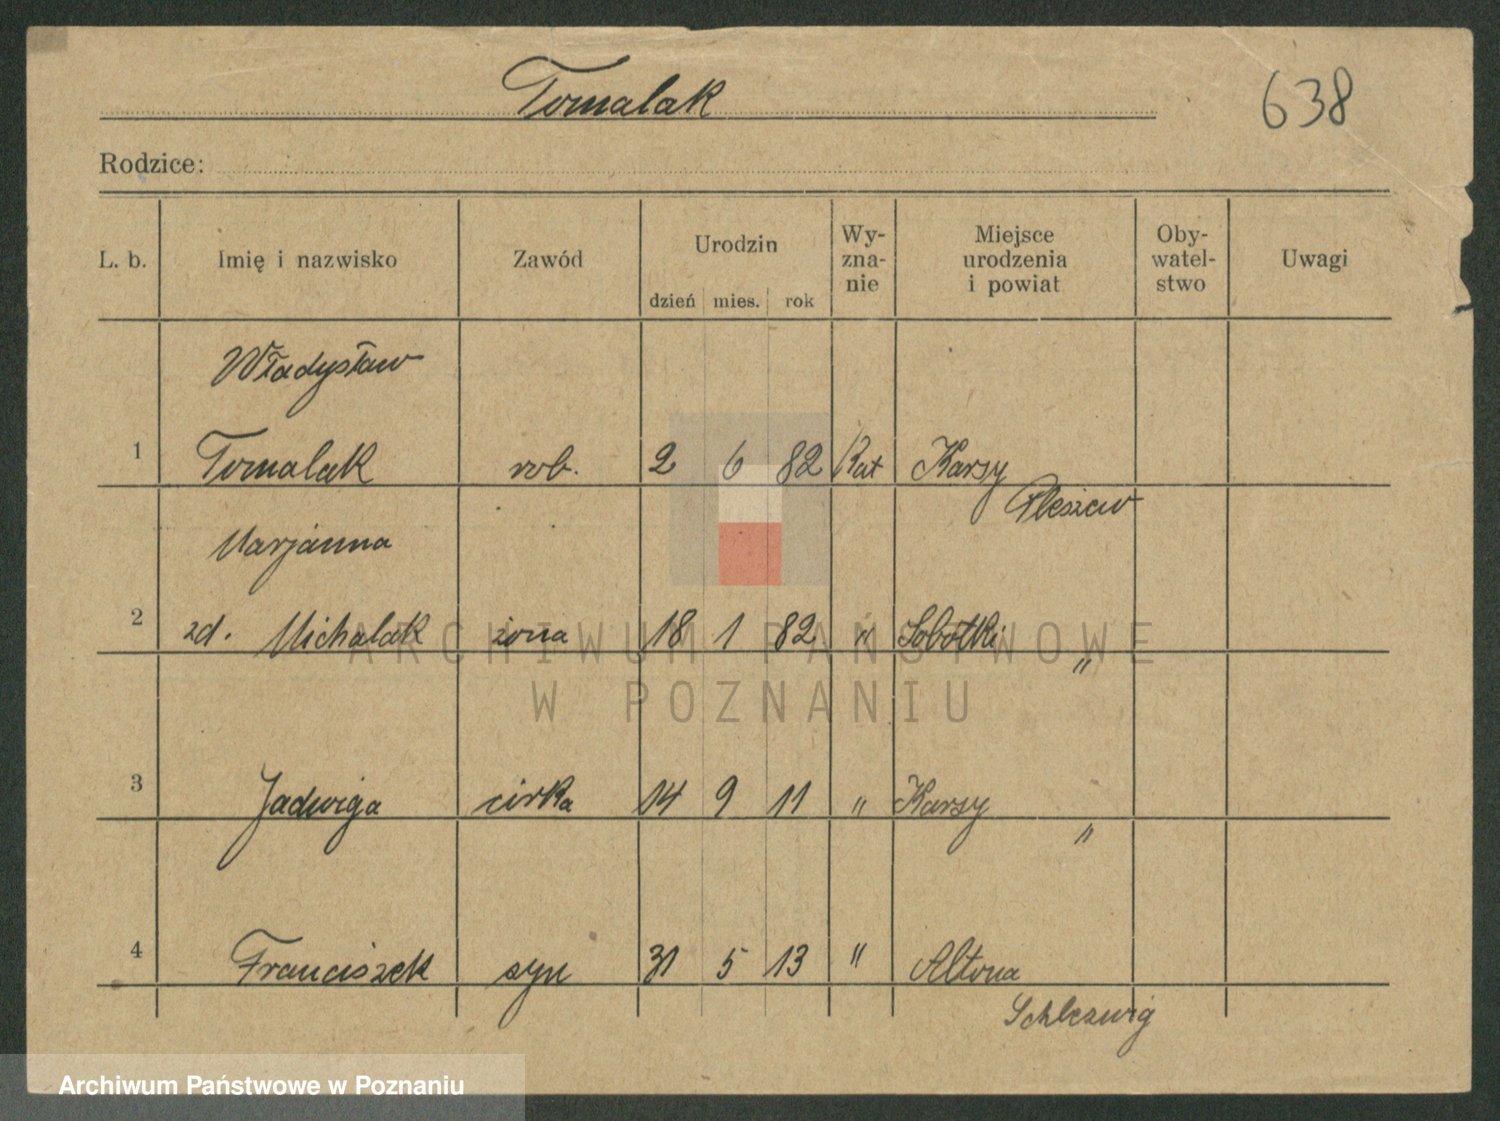 Tomalak
638
Rodzice:
L. b. Imię i nazwisko Zawód Urodzin dzień mies. rok Wy-zna-nie Miejsce urodzenia i powiat Oby-watel-stwo Uwagi
Władysław
1 Tomalak rob. 2 6 82 Kat Karsy
Pleszew
Marjanna
2 zd. Michalak żona 18 1 82 " Sobótki
"
3 Jadwiga córka 14 9 11 " Karsy
"
4 Franciszek syn 31 5 13 " Altona
Schlezwig
ARCHIWUM PAŃSTWOWE
W POZNANIU
Archiwum Państwowe w Poznaniu